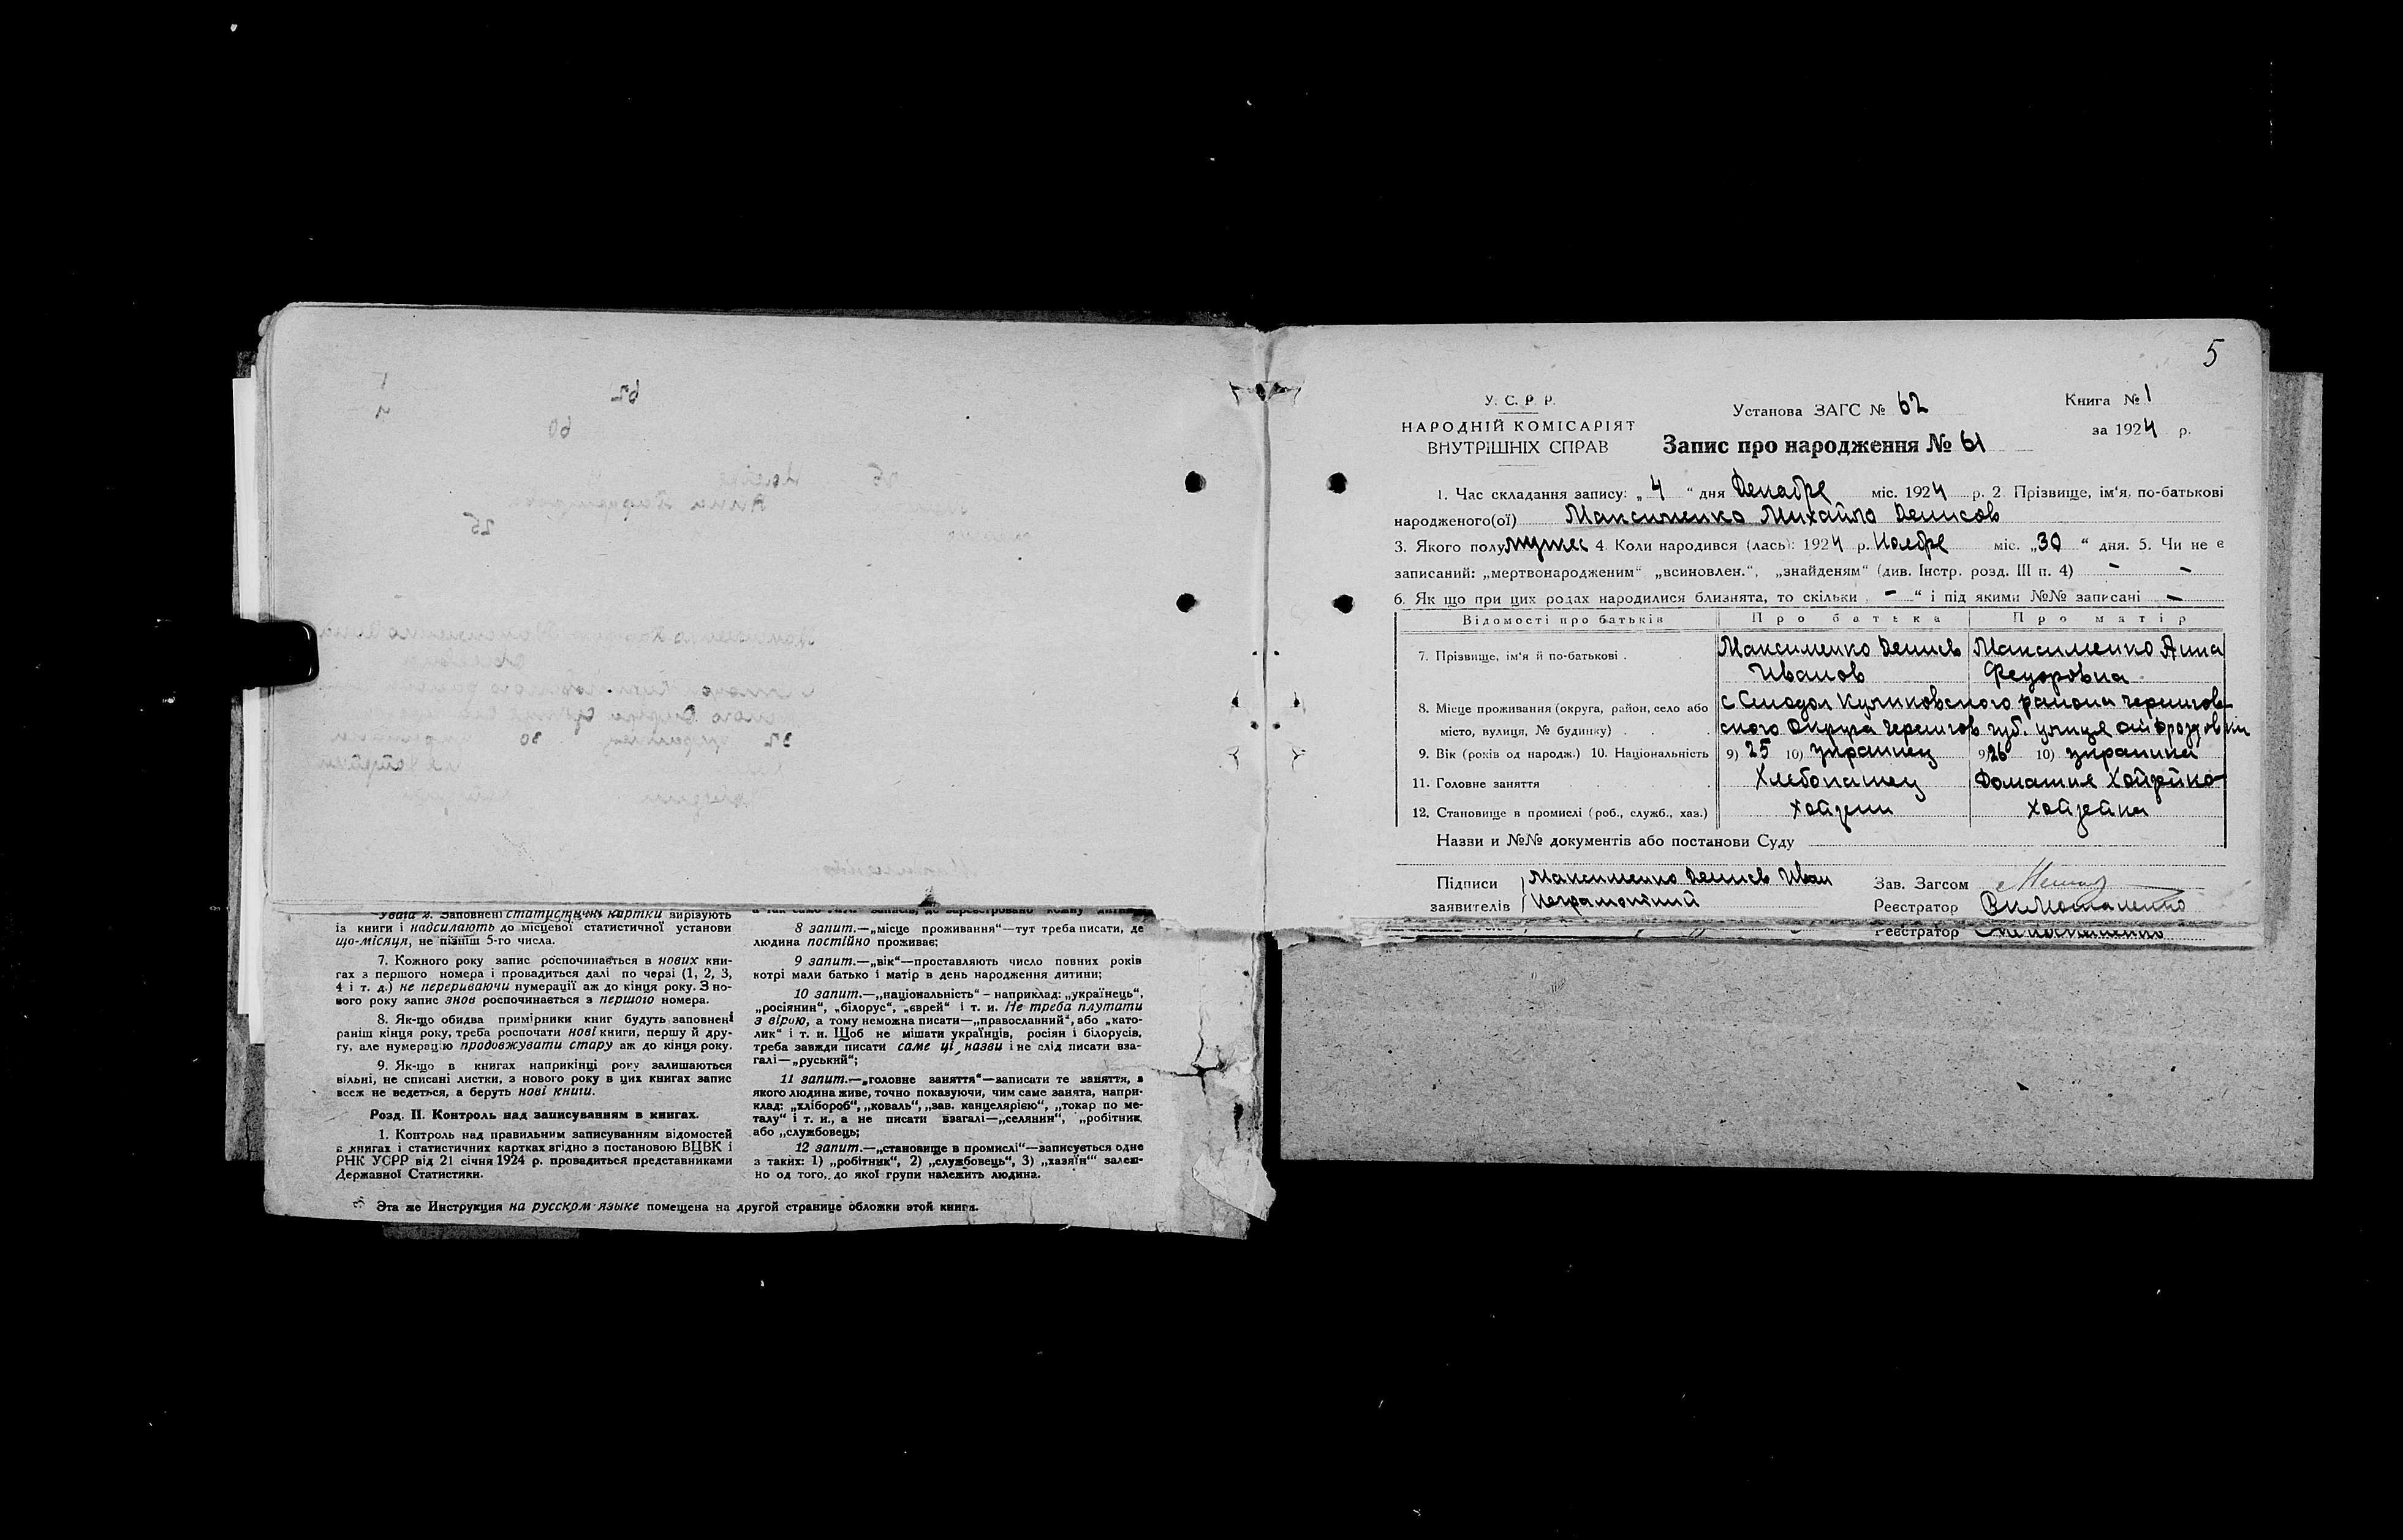 Увага 2. Заповнені статистичні картки вирізують
із книги і надсилають до місцевої статистичної установи
що-місяця, не пізніш 5-го числа.
7. Кожного року запис роспочинається в нових кни-
гах з першого номера і провадиться далі по черзі (1, 2, 3,
4 і т. д.) не перериваючи нумерації аж до кінця року. З но-
вого року запис знов роспочинається з першого номера.
8. Як-що обидва примірники книг будуть заповнені
раніш кінця року, треба роспочати нові книги, першу й дру-
гу, але нумерацію продовжувати стару аж до кінця року.
9. Як-що в книгах наприкінці року залишаються
вільні, не списані листки, з нового року в цих книгах запис
всеж не ведеться, а беруть нові книги.
Розд. II. Контроль над записуванням в книгах.
1. Контроль над правильним записуванням відомостей
в книгах і статистичних картках згідно з постановою ВЦВК і
РНК УСРР від 21 січня 1924 р. провадиться представниками
Державної Статистики.
8 запит.—„місце проживання“—тут треба писати, де
людина постійно проживає;
9 запит.—„вік“—проставляють число повних років
котрі мали батько і матір в день народження дитини;
10 запит.—„національність“ – наприклад: „українець“,
„росіянин“, „білорус“, „єврей“ і т. и. Не треба плутати
з вірою, а тому неможна писати—„православний“, або „като-
лик“ і т. и. Щоб не мішати українців, росіян і білорусів,
треба завжди писати саме ці назви і не слід писати вза-
галі—„руський“;
11 запит.—„головне заняття“—записати те заняття, з
якого людина живе, точно показуючи, чим саме занята, напри-
клад: „хлібороб“, „коваль“, „зав. канцелярією“, „токар по ме-
талу“ і т. и., а не писати взагалі—„селянин“, „робітник
або „службовець;
12 запит.—„становище в промислі“—записується одне
з таких: 1) „робітник“, 2) „службовець“, 3) „хазяїн“ залеж-
но од того, до якої групи належить людина.
Эта же Инструкция на русском языке помещена на другой странице обложки этой книги.
5
У. С. Р. Р.
НАРОДНІЙ КОМІСАРІЯТ
ВНУТРІШНІХ СПРАВ
Установа ЗАГС № 62
Книга № 1
за 1924 р.
Запис про народження № 61
1. Час складання запису: „ 4 “ дня Декабре міс. 1924 р. 2. Прізвище, ім‘я, по-батькові
народженого(ої) Максименко Михайло Денисов
3. Якого полу мужес 4. Коли народився (лась): 1924 р. Ноябре міс. „30“ дня. 5. Чи не є
записаний: „мертвонародженим“ „всиновлен.“, „знайденям“ (див. Інстр. розд. III п. 4) – –
6. Як що при цих родах народилися близнята, то скільки „ – “ і під якими №№ записані –
Відомості про батьків Про батька Про матір
7. Прізвище, ім‘я й по-батькові . Максименко Денисв Максименко Анна
Иванов Федоровна
8. Місце проживання (округа, район, село або с Смодол Куликовского района Чернигов-
місто, вулиця, № будинку) . . ского Округа Чернигов губ. улиця
9. Вік (років од народж.) 10. Національність 9) 25 10) украинец 9) 26 10) украинка
11. Головне заняття Хлебопашец Домашня
12. Становище в промислі (роб., служб., хаз.)
Назви и №№ документів або постанови Суду
Підписи Максименко Денисв Иван
заявителів Неграмотний
Зав. Загсом
Реєстратор
Реєстратор